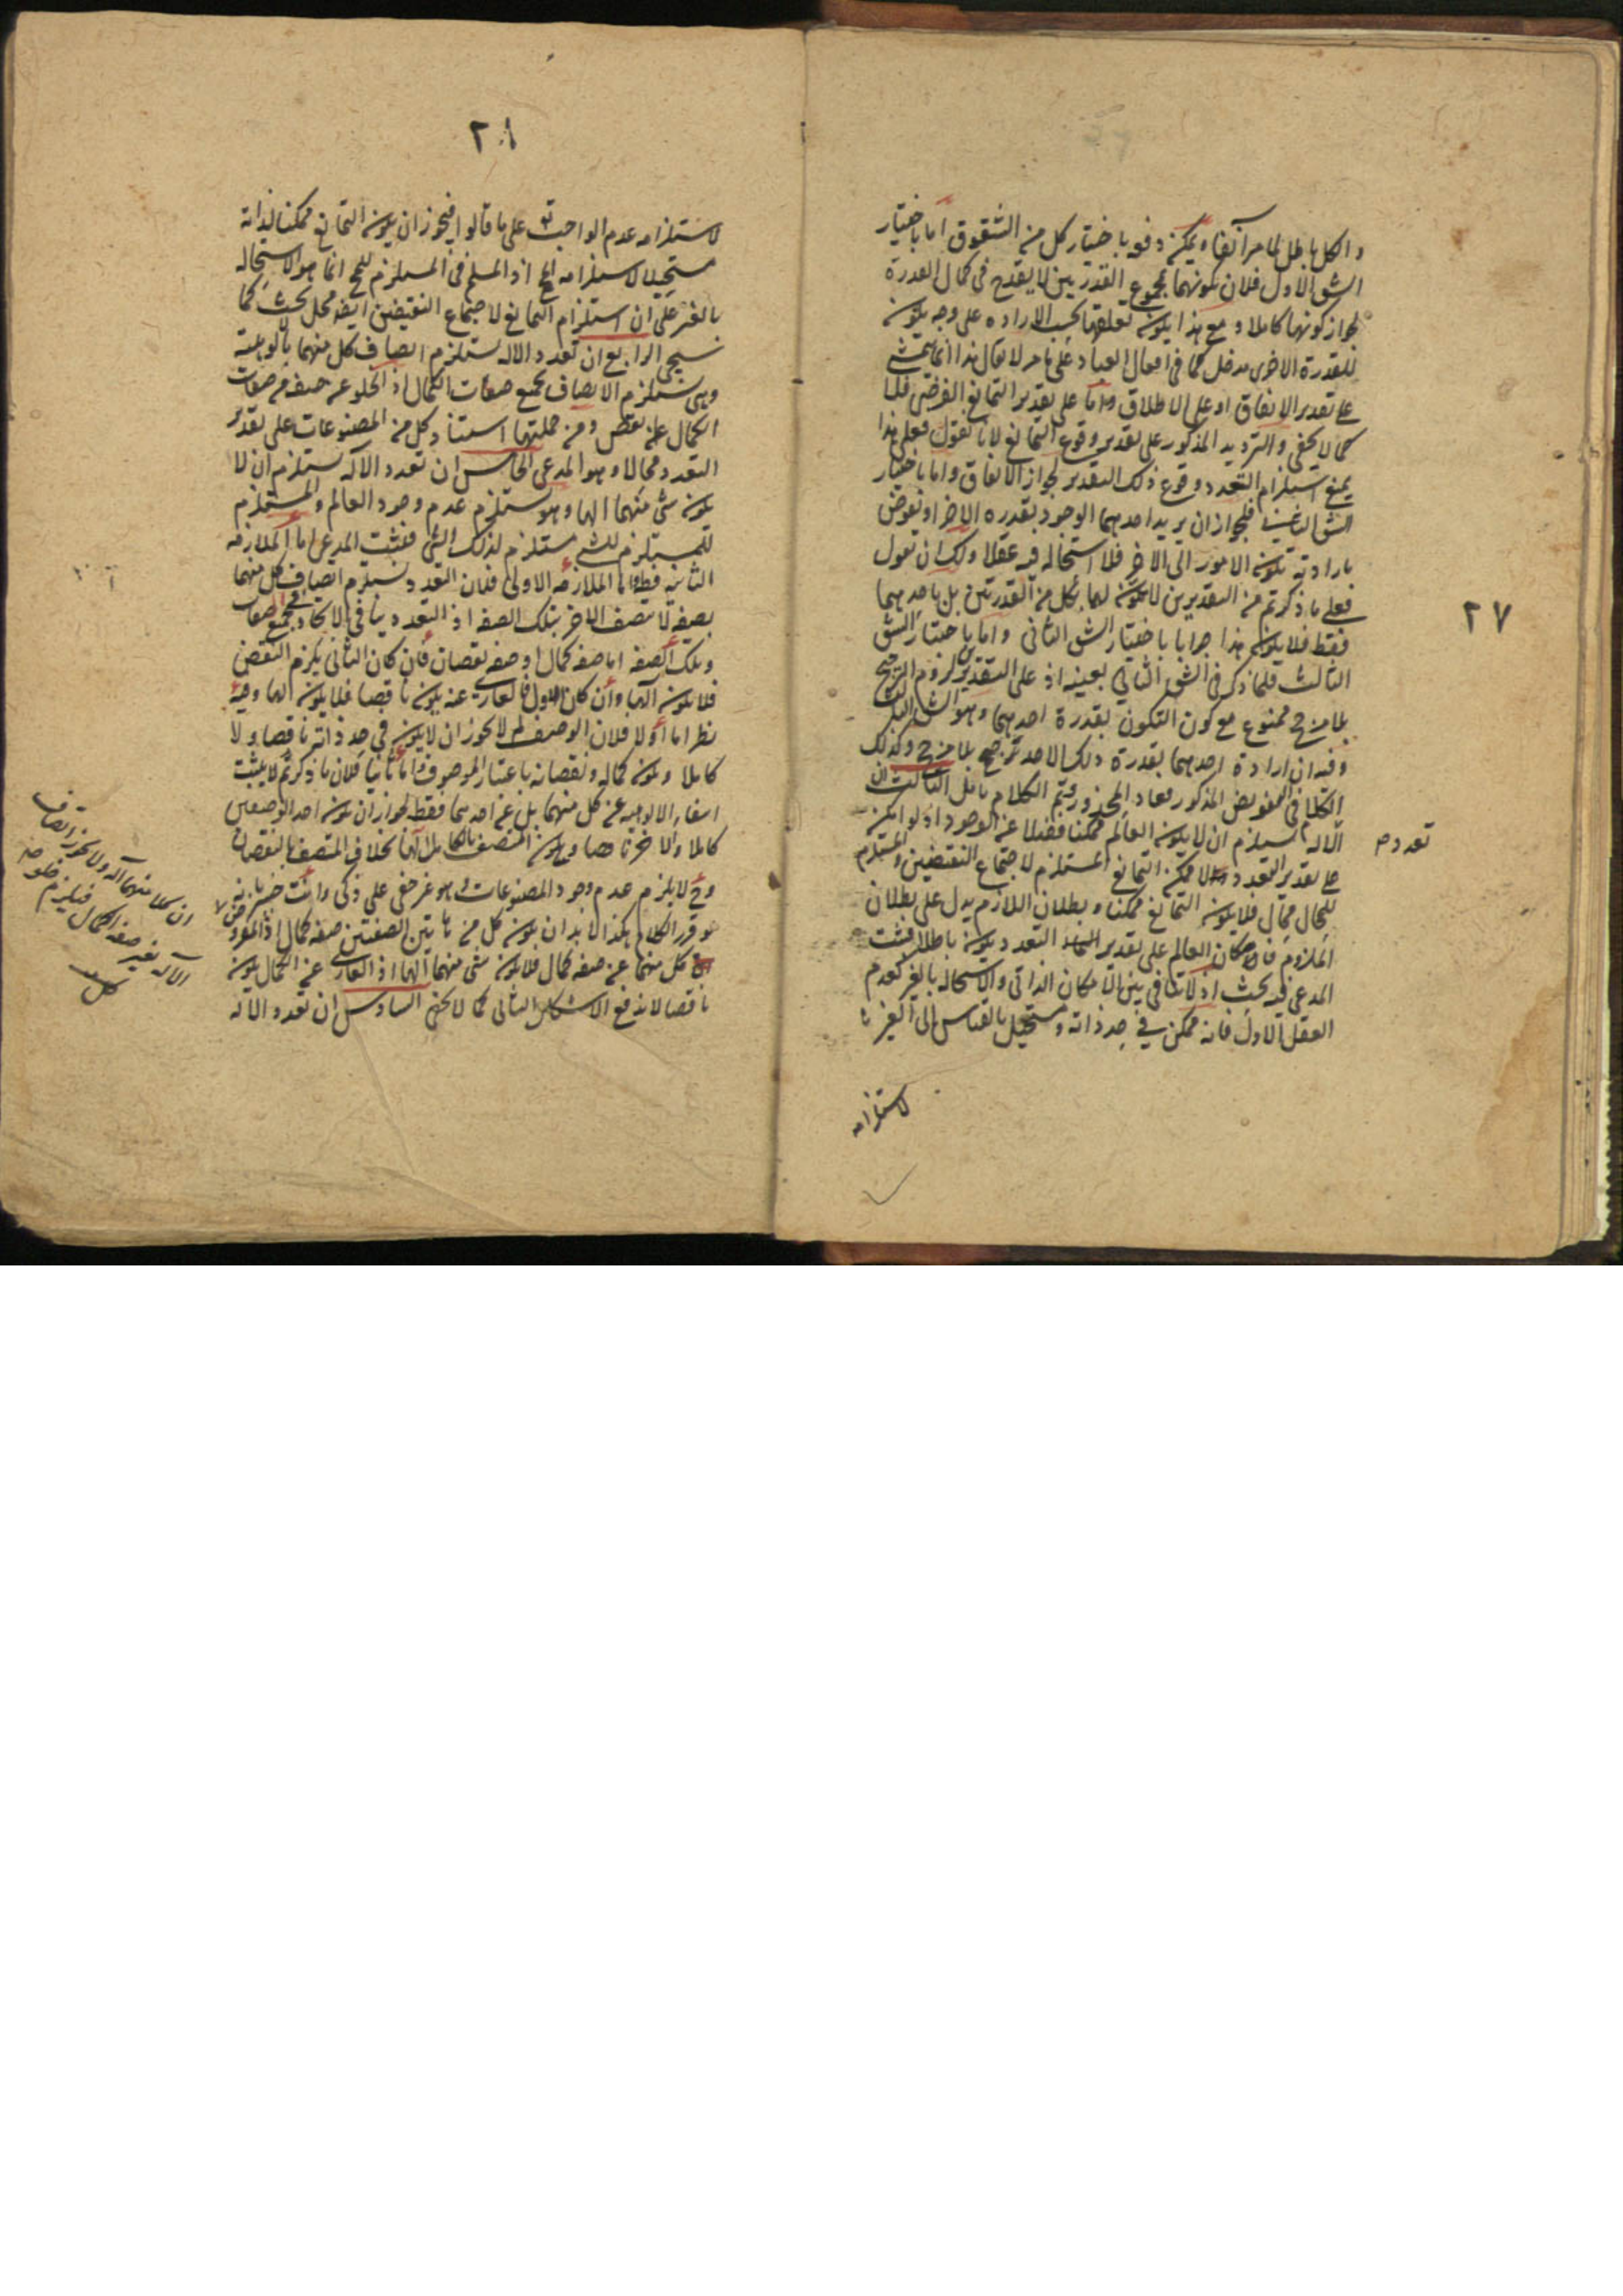 ٢٧
والكل باطل لما مر آنفا ويمكن دفعه باختيار كل من الشقوق اما باختيار
الشق الاول فلان كونهما بمجموع القدرتين لا يقدح في كمال القدرة
لجواز كونها كاملا ومع هذا يكون تعلقها بحسب الارادة على وجه يكون
للقدرة الاخرى مدخل كما في افعال العباد على ما مر لا يقال هذا انما يتمشى
على تقدير الاتفاق او على الاطلاق واما على تقدير التمانع الفرضي فلا
كما لا يخفى والترديد المذكور على تقدير وقوع التمانع لانا نقول فعلى هذا
يمنع استلزام التعدد وقوع ذلك التقدير لجواز الاتفاق واما باختيار
الشق الثاني فلجواز ان يريد احدهما الوجود بقدرة الاخر او تفوض
بارادته تكون الامور الى الاخر فلا استحالة فيه عقلا ولك ان تقول
فعلى ما ذكرتم من التقديرين لا يكون لهما بكل من القدرتين بل باحديهما
فقط فلا يكون هذا جوابا باختيار الشق الثاني واما باختيار الشق
الثالث فلما ذكر في الشق الثاني بعينه اذ على التقديرين لزوم الترجيح
بلا مرجح ممنوع مع كون التكون بقدرة احدهما وهو الشق الثالث
وفيه ان ارادة احدهما بقدرة ذلك الاحد ترجيح بلا مرجح وكذلك
الكلام في التفويض المذكور فعاد المحذور ويتم الكلام تأمل الثالث ان
تعدد م
الآلهة يستلزم ان لا يكون العالم ممكنا فضلا عن الوجود اذ لو امكن
على تقدير التعدد لامكن التمانع المستلزم لاجتماع النقيضين والمستلزم
للمحال محال فلا يكون التمانع ممكنا وبطلان اللازم يدل على بطلان
الملزوم فامكان العالم على تقدير التعدد يكون باطلا فثبت
المدعى فيه بحث اذ لا تنافي بين الامكان الذاتي والاستحالة بالغير كعدم
العقل الاول فانه ممكن في حد ذاته ومستحيل بالقياس الى الغير
لاستلزامه
٢٨
لاستلزامه عدم الواجب تع على ما قالوا فيجوز ان يكون التمانع ممكنا لذاته
مستحيلا لاستلزامه المح اذ المسلم في المستلزم للمح انما هو الاستحالة
بالغير على ان استلزام التمانع لاجتماع النقيضين ايضا محل بحث كما
سيجي الرابع ان تعدد الاله يستلزم اتصاف كل منهما بالوهية
وهي يستلزم الاتصاف بجميع صفات الكمال اذ الخلو عن صفة من صفات
الكمال نقص ومن جملتها استناد كل من المصنوعات على تقدير
التعدد محالا وهو المدعى الخامس ان تعدد الآله يستلزم ان لا
يكون شي منهما الها وهو يستلزم عدم وجود العالم والمستلزم
للمستلزم للشي مستلزم لذلك الشي فثبت المدعى اما الملازمة
الثانية فظ واما الملازمة الاولى فلان التعدد يستلزم اتصاف كل منهما
بصفة لا يتصف الاخر بتلك الصفة اذ التعدد ينافي الاتحاد بجميع الصفات
وتلك الصفة اما صفة كمال او صفة نقصان فان كان الثاني يلزم النقص
فلا يكون الها وان كان الاول فالعاري عنه يكون ناقصا فلا يكون الها وفيه
نظر اما اولا فلان الوصف لم لا يجوز ان لا يكون في حد ذاته ناقصا ولا
كاملا ويكون كماله ونقصانه باعتبار الموصوف واما ثانيا فلان ما ذكرتم لا يثبت
انتفاء الالوهية عن كل منهما بل عن احدهما فقط لجواز ان يكون احد الوصفين
كاملا والاخر ناقصا ويكون المتصف بالكامل الها بخلاف المتصف بالنقصان
وح لا يلزم عدم وجود المصنوعات وهو غير خفي على ذكي وانت خبير بانه
لو قرر الكلام هكذا لا بد ان يكون كل من هاتين الصفتين صفة كمال اذ المفروض
ان كلا منهما آله ولا يجوز اتصاف
الآله بغير صفة الكمال فيلزم خلو
كل منهما عن صفة كمال فلا يكون شي منهما الها اذ العاري عن الكمال يكون
ناقصا لاندفع الاشكال الثاني كما لا يخفى السادس ان تعدد الاله